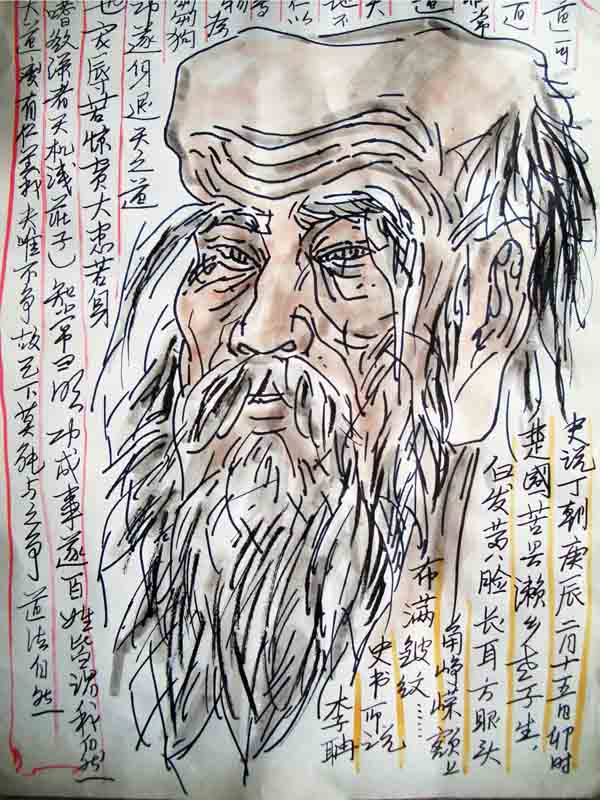 道可
道
常
道
天
地不
仁以
刍狗
功遂身退天之道
宠辱若惊贵大患若身
嗜欲深者天机浅庄子）知常曰明 功成事遂百姓皆谓我自然
大道废有仁义 夫唯不争故天下莫能与之争 道法自然
史说丁朝庚辰二月十五日卯时
楚国苦县濑乡老子生
白发黄脸长耳方眼头
角峥嵘额上
布满皱纹……
史书所说
李聃